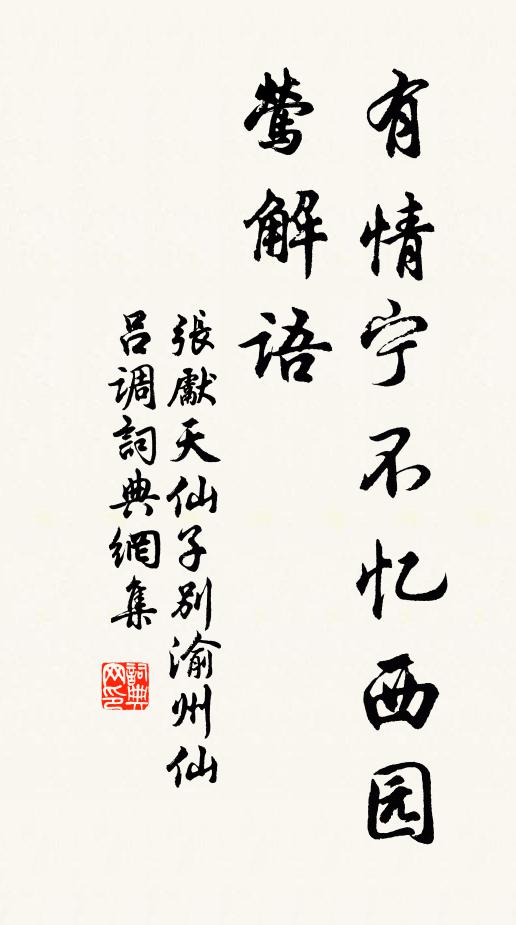 有情宁不忆西园
莺解语
張獻天仙子别渝州仙
吕调詞典網集
詞典网印